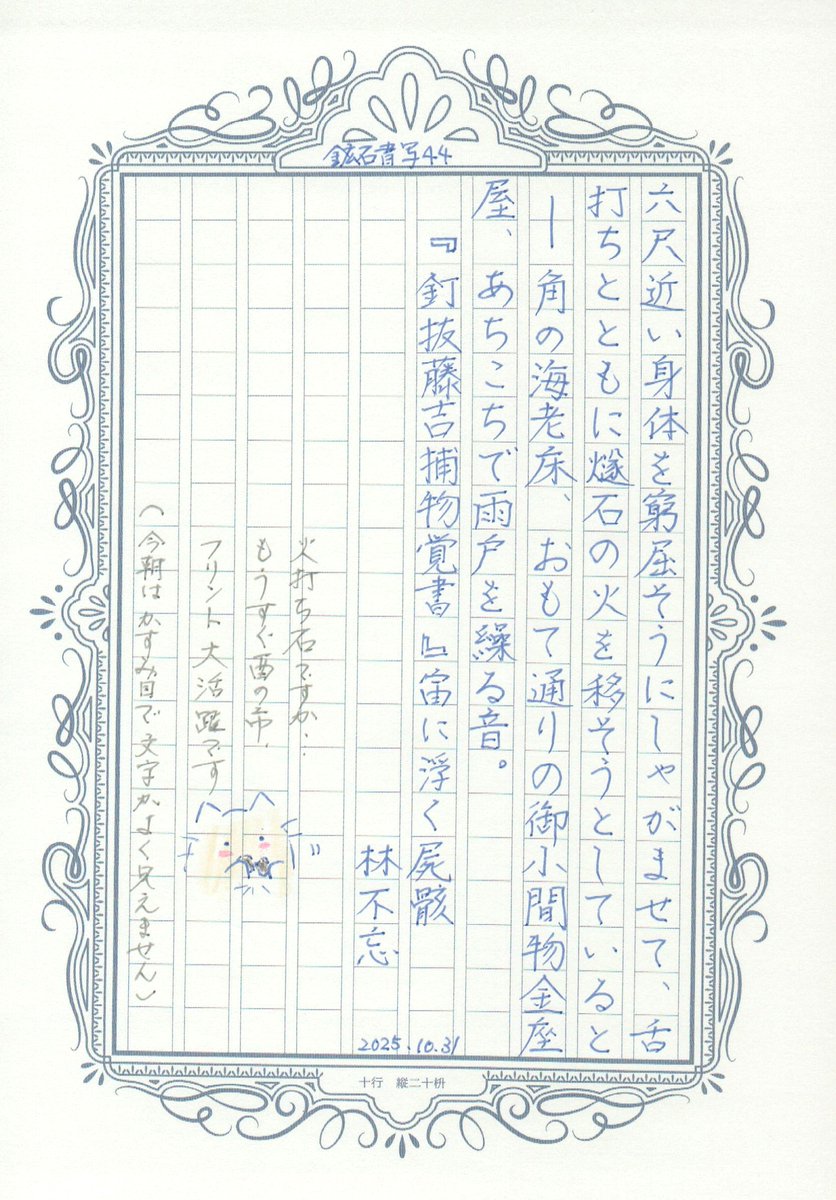 鉱石書写44
六尺近い身体を窮屈そうにしゃがませて、舌
打ちとともに燧石の火を移そうとしていると
―角の海老床、おもて通りの御小間物金座
屋、あちこちで雨戸を繰る音。
『釘抜藤吉捕物覚書』宙に浮く屍骸
林不忘
2025.10.31
火打ち石ですか…
もうすぐ酉の市.
フリント大活躍です
(今朝はかすみ目で文字がよく見えません)
十行 縦二十枡